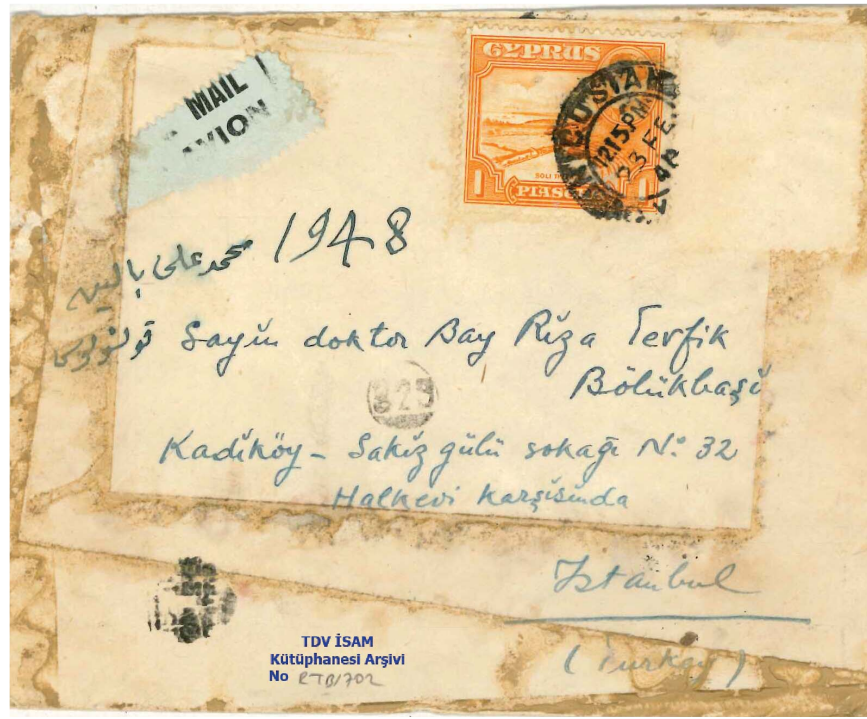 MAIL
AVION
CYPRUS
1 PIAS 1
SOLI TH
NICOSIA
12.15 PM
23 FE
48
1948
محمد علی بالین
Sayın doktor Bay Rıza Tevfik
Bölükbaşı
325
Kadıköy - Sakız gülü sokağı No: 32
Halkevi karşısında
Istanbul
(Turkey)
TDV İSAM
Kütüphanesi Arşivi
No RTB/702